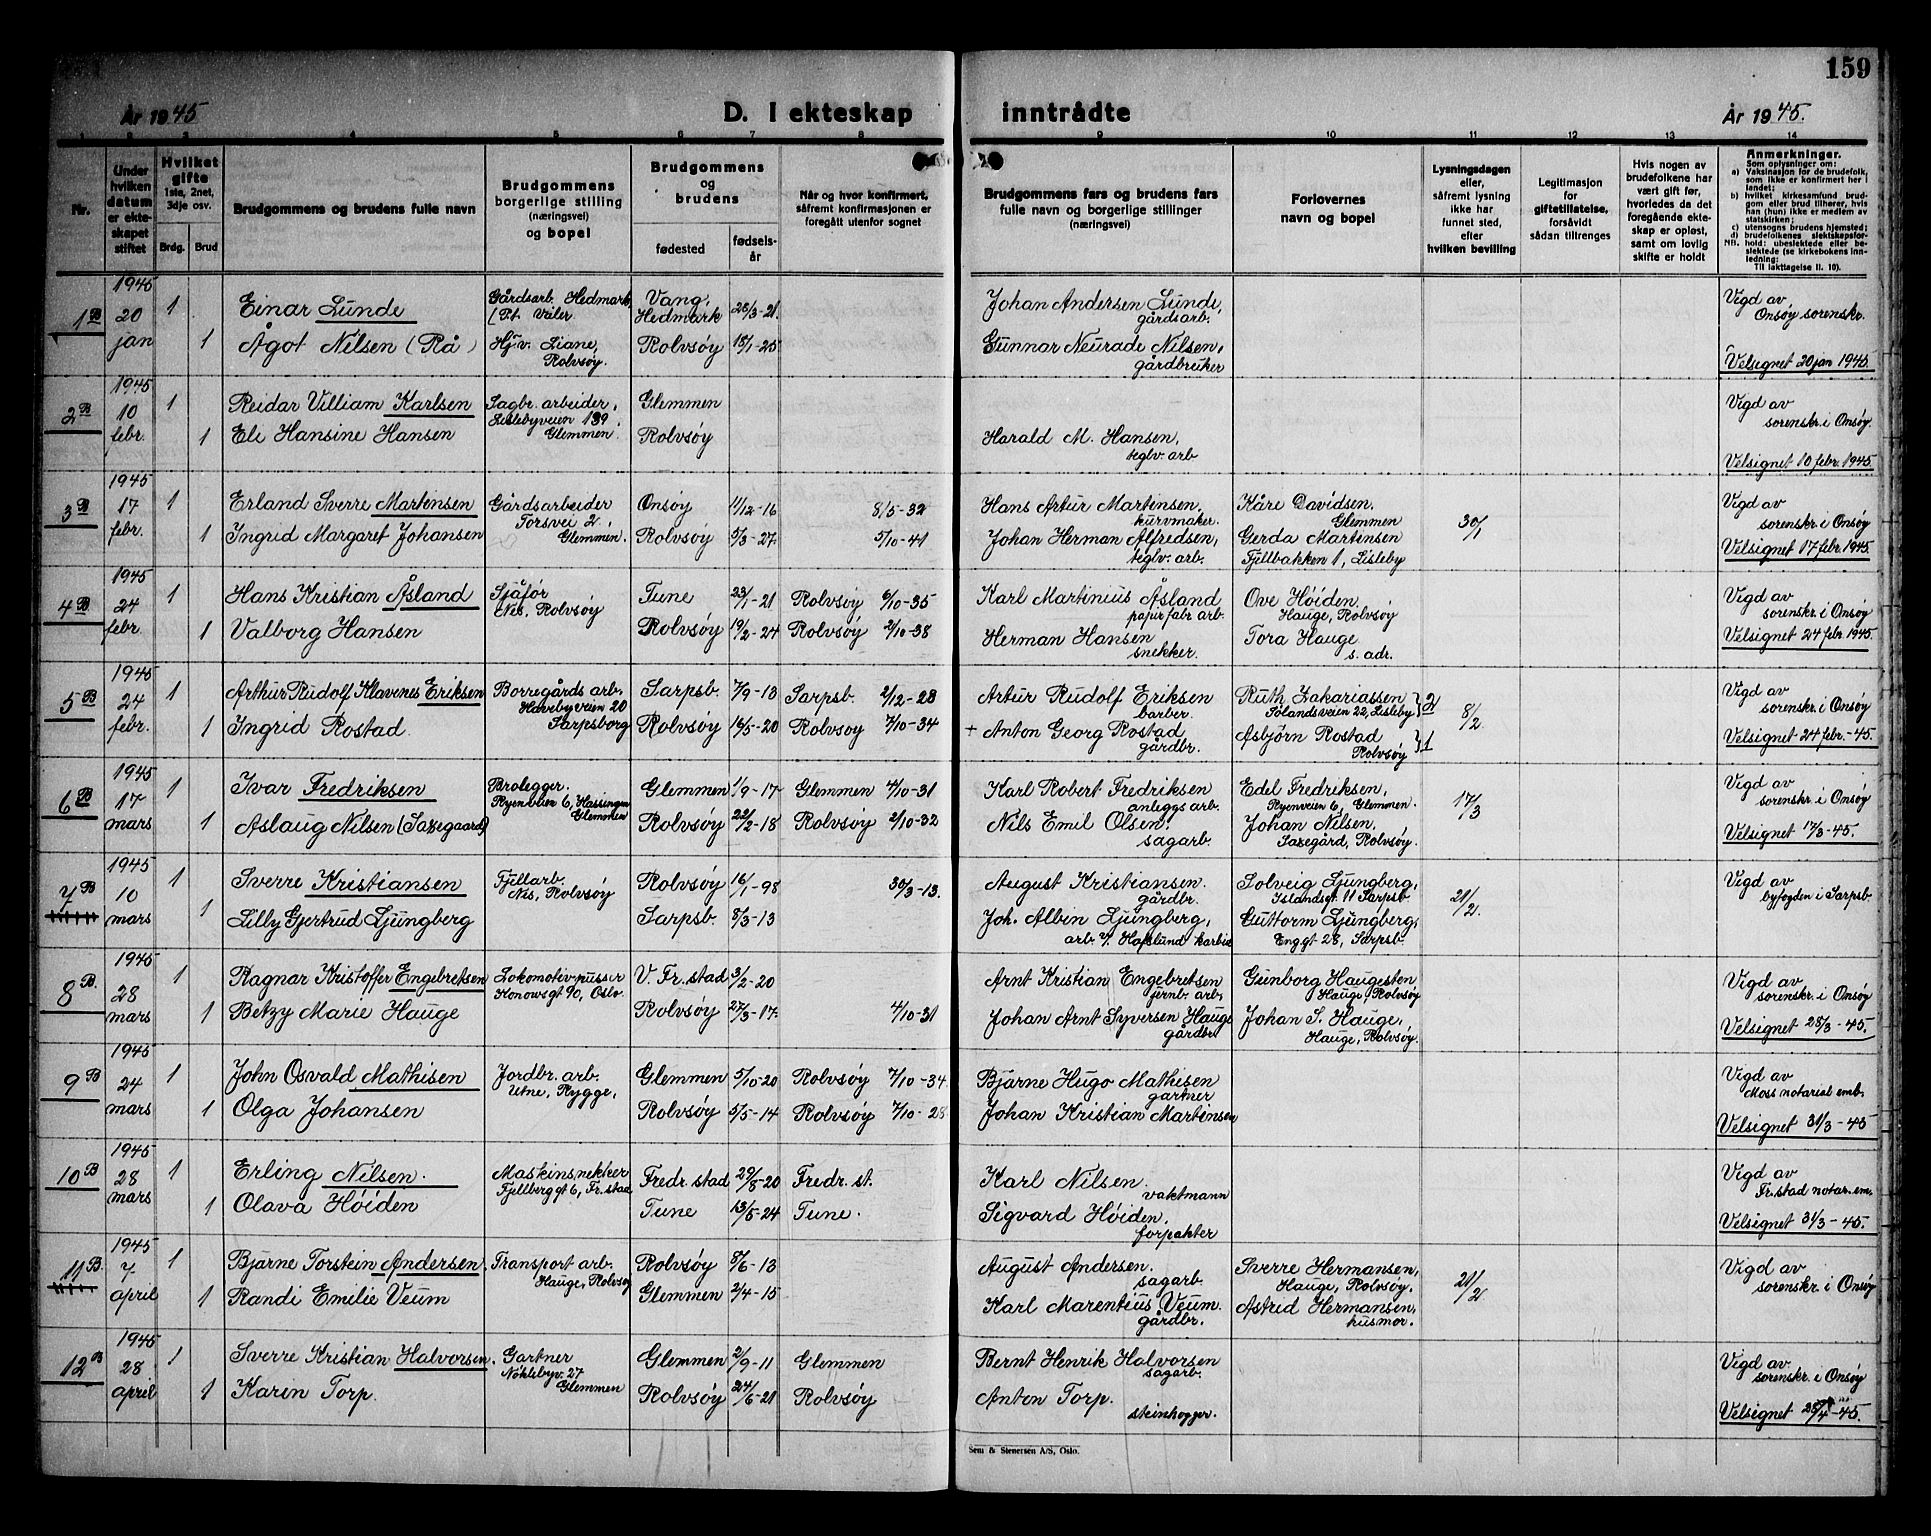 159
År 1945
D. I ekteskap
inntrådte
År 1945.
1 2 3 4 5 6 7 8 9 10 11 12 13 14
Nr.
Under hvilken datum er ekteskapet stiftet
Hvilket gifte
1ste, 2net, 3dje osv.
Brdg. Brud
Brudgommens og brudens fulle navn
Brudgommens borgerlige stilling (næringsvei) og bopel
Brudgommens og brudens
fødested
fødselsår
Når og hvor konfirmert, såfremt konfirmasjonen er foregått utenfor sognet
Brudgommens fars og brudens fars fulle navn og borgerlige stillinger (næringsvei)
Forlovernes navn og bopel
Lysningsdagen eller, såfremt lysning ikke har funnet sted, efter hvilken bevilling
Legitimasjon for giftetillatelse, forsåvidt sådan tiltrenges
Hvis nogen av brudefolkene har vært gift før, hvorledes da det foregående ekteskap er opløst, samt om lovlig skifte er holdt
Anmerkninger.
Som oplysninger om:
a) Vaksinasjon for de brudefolk, som ikke er konfirmert her i landet;
b) hvilket kirkesamfund brudgom eller brud tilhører, hvis han (hun) ikke er medlem av statskirken;
c) utensogns brudens hjemsted;
d) brudefolkenes slektskapsforhold: ubeslektede eller beslektede (se kirkebokens innledning:
NB.
Til iakttagelse II. 10).
1 B 1945 20 jan
1 Einar Lunde Gårdsarb. Hedmark (P.t. Våler Vang, Hedmark 26/3-21 Johan Andersen Lunde, gårdsarb. Vigd av Onsøy sorenskr.
1 Ågot Nilsen (Rå) Hj.v. Liane, Rolvsøy. Rolvsøy 18/1-25 Gunnar Neurade Nilsen, gårdbruker Velsignet 20 jan 1945.
2 B 1945 10 febr.
1 Reidar Villiam Karlsen Sagbr. arbeider, Lislebyveien 139, Glemmen. Glemmen Vigd av sorenskr. i Onsøy
1 Eli Hansine Hansen Rolvsøy Harald M. Hansen, teglv. arb Velsignet 10 febr. 1945
3 B 1945 17 febr.
1 Erland Sverre Martensen Gårdsarbeider Torsvei 2, Glemmen. Onsøy 11/12-16 8/5-32 Hans Artur Martinsen kurvmaker. Kåre Davidsen. Glemmen 30/1 Vigd av sorenskr. i Onsøy
1 Ingrid Margaret Johansen Rolvsøy 5/3-27. 5/10-41 Johan Herman Alfredsen, teglv. arb. Gerda Martensen Fjellbakken 1, Lisleby Velsignet 17 febr. 1945.
4 B 1945 24 febr.
1 Hans Kristian Åsland Sjåfør Nes, Rolvsøy Tune 23/1-21 Rolvsøy 6/10-35 Karl Martinius Åsland papirfabr arb. Ove Höiden. Hauge, Rolvsøy Vigd av sorenskr. i Onsøy
1 Valborg Hansen Rolvsøy 19/2-24 Rolvsøy 2/10-38 Herman Hansen snekker. Tora Hauge s. adr. Velsignet 24 febr. 1945.
5 B 1945 24 febr.
1 Arthur Rudolf Klavenes Eriksen Borregårds arb. Havebyveien 20 Sarpsborg Sarpsb. 7/9-13 Sarpsb. 2/12-28 Artur Rudolf Eriksen barber. Ruth Zakariassen Sølandsveien 22, Lisleby } 2 8/2 Vigd av sorenskr. i Onsøy
1 Ingrid Rostad. Rolvsøy 16/5-20 Rolvsøy 7/10-34 + Anton Georg Rostad gårdbr. Asbjörn Rostad Rolvsøy } 1 Velsignet 24 febr.-45.
6 B 1945 17 mars
1 Ivar Fredriksen Brolegger. Ryenveien 6, Hassingen Glemmen Glemmen 1/9-17 Glemmen 4/10-31 Karl Robert Fredriksen anleggs arb. Edel Fredriksen, Ryenveien 6, Glemmen. 17/3 Vigd av sorenskr. i Onsøy
1 Aslaug Nilsen (Saxegaard) Rolvsøy 22/2-18 Rolvsøy 2/10-32 Nils Emil Olsen, sagarb. Johan Nilsen, Saxegård, Rolvsøy. Velsignet 17/3-45.
7 B 1945 10 mars
1 Sverre Kristiansen Fjellarb. Nes, Rolvsøy Rolvsøy 16/1-98 30/3-13. August Kristiansen. gårdbr. Solveig Ljungberg, Islandsgt. 11 Sarpsb. 21/2. Vigd av byfogden i Sarpsb
1 Lilly Gjertrud Ljungberg Sarpsb. 8/3-13 Joh. Albin Ljungberg, arb. v. Hafslund karbid Guttorm Ljungberg, Enggt 28, Sarpsb.
8 B. 1945 28 mars
1 Ragnar Kristoffer Engebretsen Lokomotivpusser Konowsgt 90, Oslo. V. Fr.stad 3/2-20 Arnt Kristian Engebretsen jernb. arb, Gunborg Haugesten Hauge, Rolvsøy Vigd av sorenskr. i Onsøy
1 Betzy Marie Hauge Rolvsøy 27/3-17. 4/10-31 Johan Arnt Syversen Hauge gårdbr. Johan S. Hauge, Hauge, Rolvsøy. Velsignet 28/3-45.
9 B 1945 24 mars
1 John Osvald Mathisen Jordbr. arb. Utne, Rygge, Glemmen 5/10-20 Rolvsøy 7/10-34. Bjarne Hugo Mathisen gartner Vigd av Moss notarial emb,
1 Olga Johansen Rolvsøy 5/5-14 Rolvsøy 7/10-28 Johan Kristian Martinsen Velsignet 31/3-45
10 B 1945 28 mars
1 Erling Nilsen. Maskinsnekker Fjellberggt 6, Fr.stad Fredr.stad 29/8-20 Fredr. st. Karl Nilsen. vaktmann Vigd av Fr.stad notar. em.
1 Olava Höiden Tune 13/5-24 Tune. Sigvard Höiden, forpakter Velsignet 31/3-45.
11 B. 1945 7 april
1 Bjarne Torstein Andersen. Transport arb. Hauge, Rolvsøy Rolvsøy 8/6-13 August Andersen. sagarb. Sverre Hermansen, Hauge, Rolvsøy. 21/2 Vigd av sorenskr. i Onsøy
1 Randi Emilie Veum Glemmen 2/4-15 Karl Marentius Veum. gårdbr. Astrid Hermansen, husmor.
12 B 1945 28 april
1 Sverre Kristian Halvorsen. Gartner Nöklebyv. 27 Glemmen Glemmen 2/9-11 Glemmen Bernt Henrik Halvorsen sagarb. Vigd av sorenskr. i Onsøy
1 Karin Torp. Rolvsøy 24/6-21 Rolvsøy Anton Torp. steinhogger. Velsignet 28/4-45.
Sem & Stenersen A/S, Oslo.